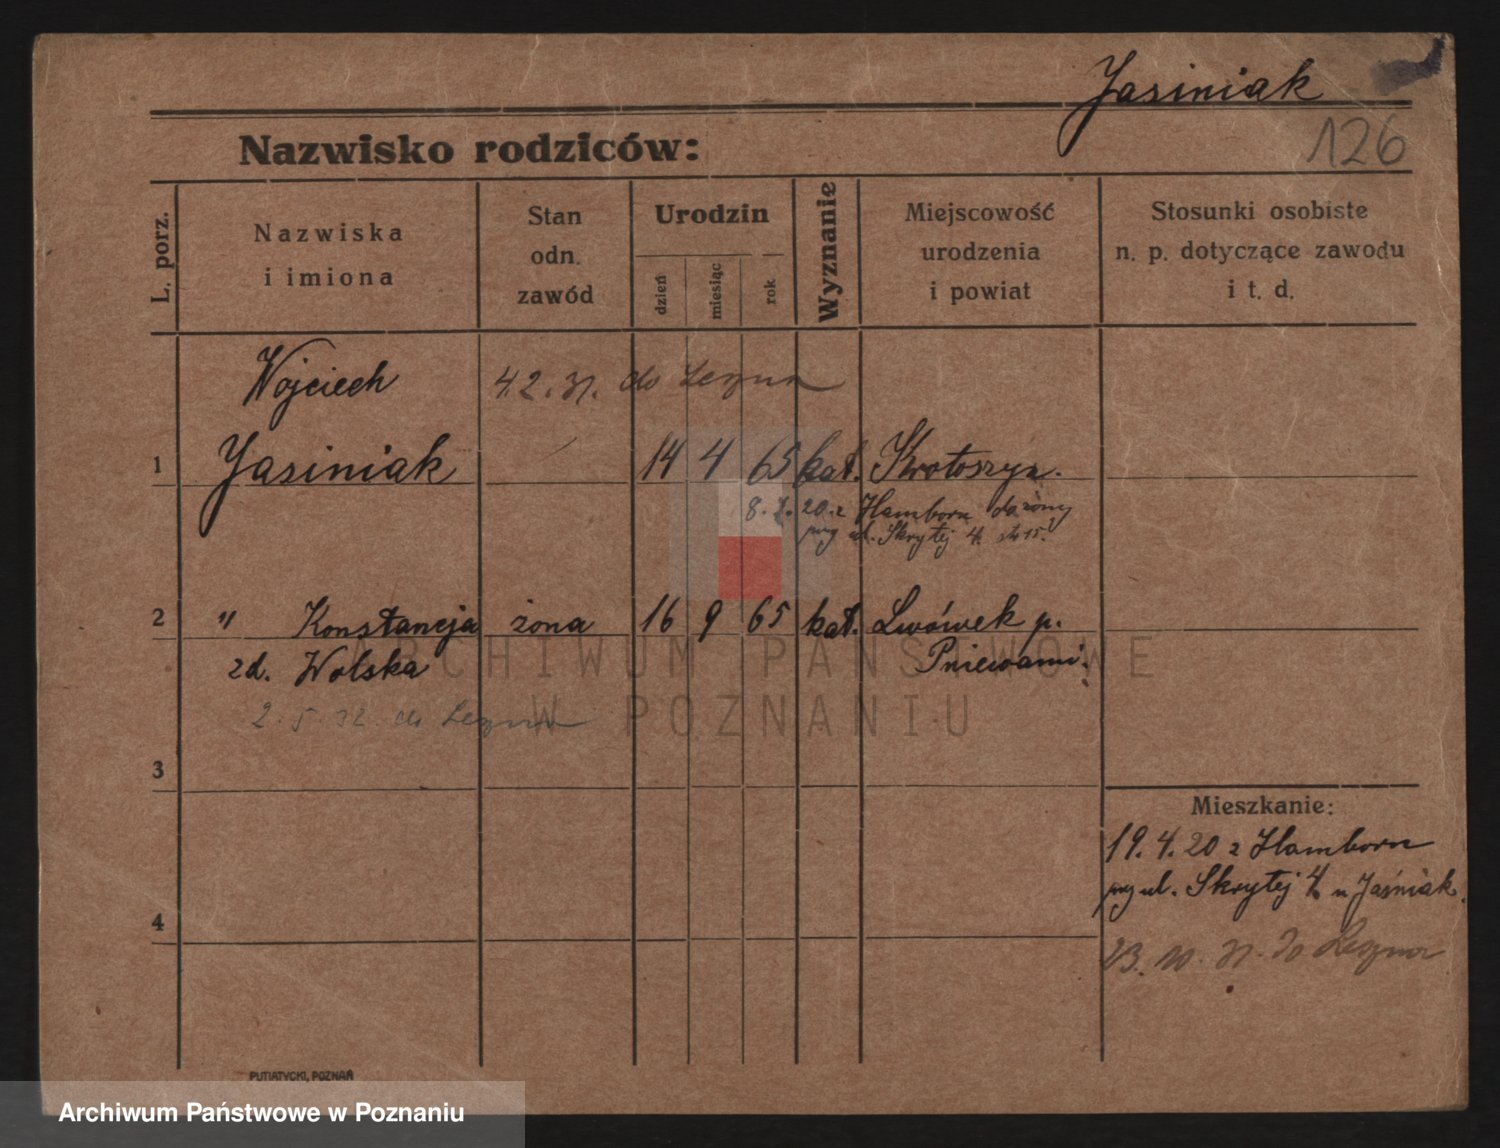 Jasiniak
126
Nazwisko rodziców:
L. porz.
Nazwiska
i imiona
Stan
odn.
zawód
Urodzin
dzień
miesiąc
rok
Wyznanie
Miejscowość
urodzenia
i powiat
Stosunki osobiste
n. p. dotyczące zawodu
i t. d.
Wojciech 4.2.31. do Leszna
1 Jasiniak 14 4 65 kat. Krotoszyn.
20 z Hamborn do żony
ul. Skrytej 4.
2 " Konstancja żona 16 9 65 kat. Lwówek p.
zd. Wolska Pniewami.
2.5.32. do Leszna
3
Mieszkanie:
19.4.20 z Hamborn
ul. Skrytej 4 u Jaśniak.
4
23.10.31. do Leszna
PUTIATYCKI, POZNAŃ
ARCHIWUM PAŃSTWOWE
W POZNANIU
Archiwum Państwowe w Poznaniu